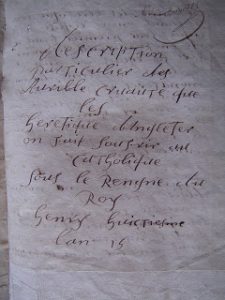 description
particulier des
cruauté que
les
heretique dAngleter
on fait soufrir au
Catholique
sous le Rengne du
Roy
henry huictiesme
lan 15